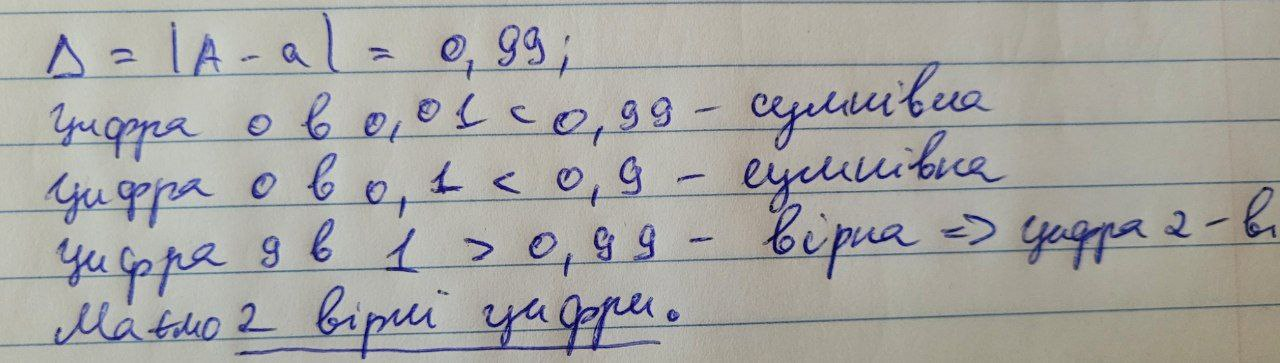 Δ = |A - a| = 0,99;
цифра 0 в 0,01 < 0,99 - сумнівна
цифра 0 в 0,1 < 0,9 - сумнівна
цифра 9 в 1 > 0,99 - вірна => цифра 2 - ві
Маємо 2 вірні цифри.